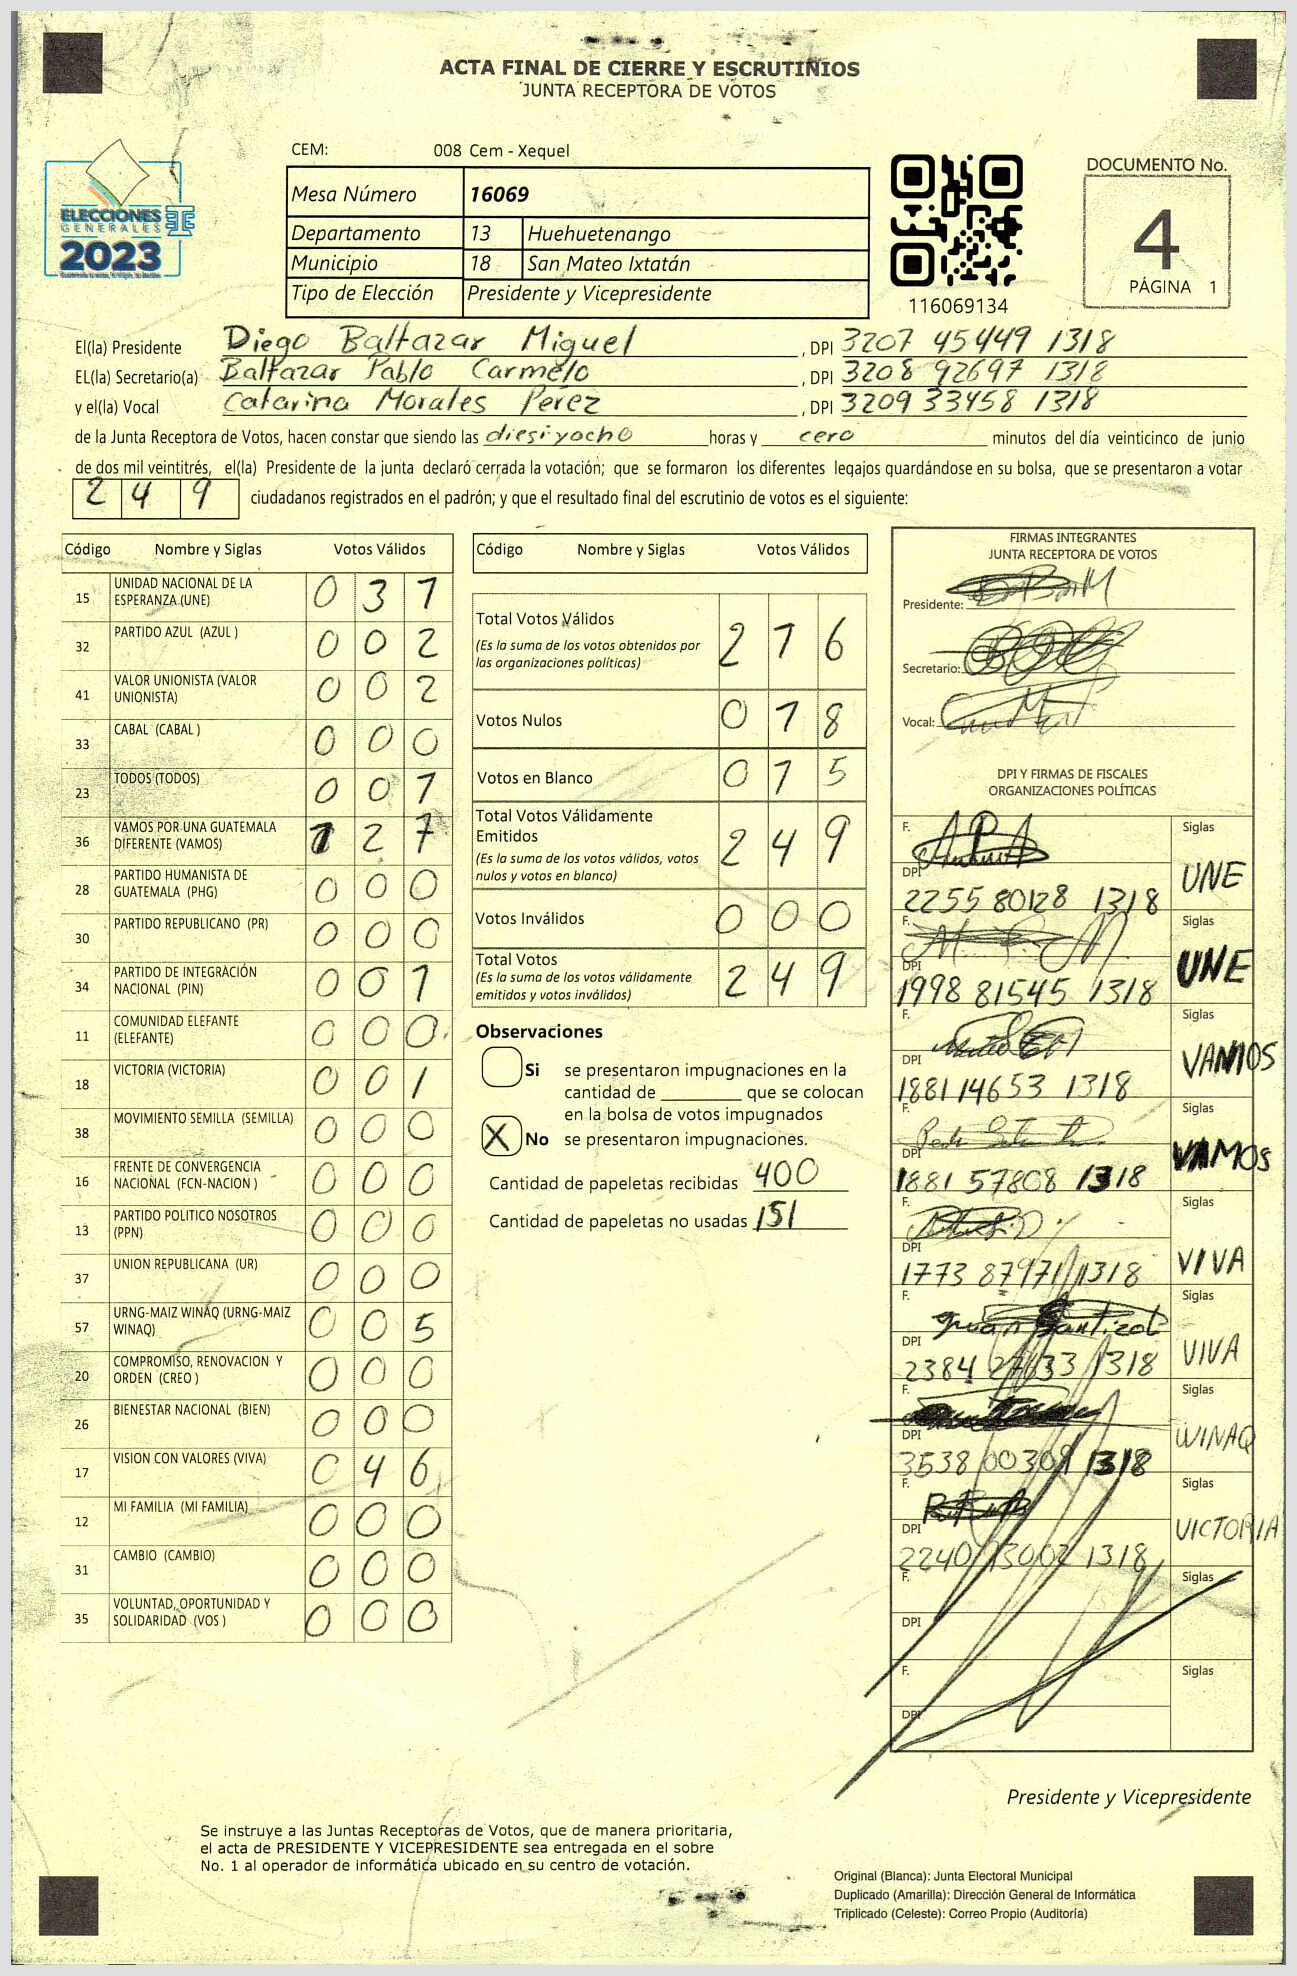 ACTA FINAL DE CIERRE Y ESCRUTINIOS
JUNTA RECEPTORA DE VOTOS
CEM: 008 Cem - Xequel
ELECCIONES
GENERALES
2023
Mesa Número 16069
Departamento 13 Huehuetenango
Municipio 18 San Mateo Ixtatán
Tipo de Elección Presidente y Vicepresidente
116069134
DOCUMENTO No.
4
PÁGINA 1
El(la) Presidente Diego Baltazar Miguel , DPI 3207 45449 1318
EL(la) Secretario(a) Baltazar Pablo Carmelo , DPI 3208 92697 1318
y el(la) Vocal Catarina Morales Perez , DPI 3209 33458 1318
de la Junta Receptora de Votos, hacen constar que siendo las diesiyocho horas y cero minutos del día veinticinco de junio
de dos mil veintitrés, el(la) Presidente de la junta declaró cerrada la votación; que se formaron los diferentes legajos guardándose en su bolsa, que se presentaron a votar
249 ciudadanos registrados en el padrón; y que el resultado final del escrutinio de votos es el siguiente:
Código Nombre y Siglas Votos Válidos
15 UNIDAD NACIONAL DE LA ESPERANZA (UNE) 0 3 1
32 PARTIDO AZUL (AZUL ) 0 0 2
41 VALOR UNIONISTA (VALOR UNIONISTA) 0 0 2
33 CABAL (CABAL ) 0 0 0
23 TODOS (TODOS) 0 0 1
36 VAMOS POR UNA GUATEMALA DIFERENTE (VAMOS) 1 2 7
28 PARTIDO HUMANISTA DE GUATEMALA (PHG) 0 0 0
30 PARTIDO REPUBLICANO (PR) 0 0 0
34 PARTIDO DE INTEGRACIÓN NACIONAL (PIN) 0 0 1
11 COMUNIDAD ELEFANTE (ELEFANTE) 0 0 0
18 VICTORIA (VICTORIA) 0 0 1
38 MOVIMIENTO SEMILLA (SEMILLA) 0 0 0
16 FRENTE DE CONVERGENCIA NACIONAL (FCN-NACION ) 0 0 0
13 PARTIDO POLITICO NOSOTROS (PPN) 0 0 0
37 UNION REPUBLICANA (UR) 0 0 0
57 URNG-MAIZ WINAQ (URNG-MAIZ WINAQ) 0 0 5
20 COMPROMISO, RENOVACION Y ORDEN (CREO ) 0 0 0
26 BIENESTAR NACIONAL (BIEN) 0 0 0
17 VISION CON VALORES (VIVA) 0 4 6
12 MI FAMILIA (MI FAMILIA) 0 0 0
31 CAMBIO (CAMBIO) 0 0 0
35 VOLUNTAD, OPORTUNIDAD Y SOLIDARIDAD (VOS ) 0 0 0
Código Nombre y Siglas Votos Válidos
Total Votos Válidos 2 1 6
(Es la suma de los votos obtenidos por
las organizaciones políticas)
Votos Nulos 0 1 8
Votos en Blanco 0 1 5
Total Votos Válidamente
Emitidos 2 4 9
(Es la suma de los votos válidos, votos
nulos y votos en blanco)
Votos Inválidos 0 0 0
Total Votos 2 4 9
(Es la suma de los votos válidamente
emitidos y votos inválidos)
Observaciones
Si se presentaron impugnaciones en la
cantidad de ________ que se colocan
en la bolsa de votos impugnados
X No se presentaron impugnaciones.
Cantidad de papeletas recibidas 400
Cantidad de papeletas no usadas 151
FIRMAS INTEGRANTES
JUNTA RECEPTORA DE VOTOS
Presidente:
Secretario:
Vocal:
DPI Y FIRMAS DE FISCALES
ORGANIZACIONES POLÍTICAS
F. Siglas
DPI 2255 80128 1318 UNE
F. Siglas
DPI 1998 81545 1318 UNE
F. Siglas
DPI 1881 14653 1318 VAMOS
F. Siglas
DPI 1881 57808 1318 VAMOS
F. Siglas
DPI 1773 87971 1318 VIVA
F. Siglas
DPI 2384 1318 VIVA
F. Siglas
DPI 3538 1318 WINAQ
F. Siglas
DPI 2240 1318 VICTORIA
F. Siglas
DPI
F. Siglas
DPI
Presidente y Vicepresidente
Se instruye a las Juntas Receptoras de Votos, que de manera prioritaria,
el acta de PRESIDENTE Y VICEPRESIDENTE sea entregada en el sobre
No. 1 al operador de informática ubicado en su centro de votación.
Original (Blanca): Junta Electoral Municipal
Duplicado (Amarilla): Dirección General de Informática
Triplicado (Celeste): Correo Propio (Auditoría)